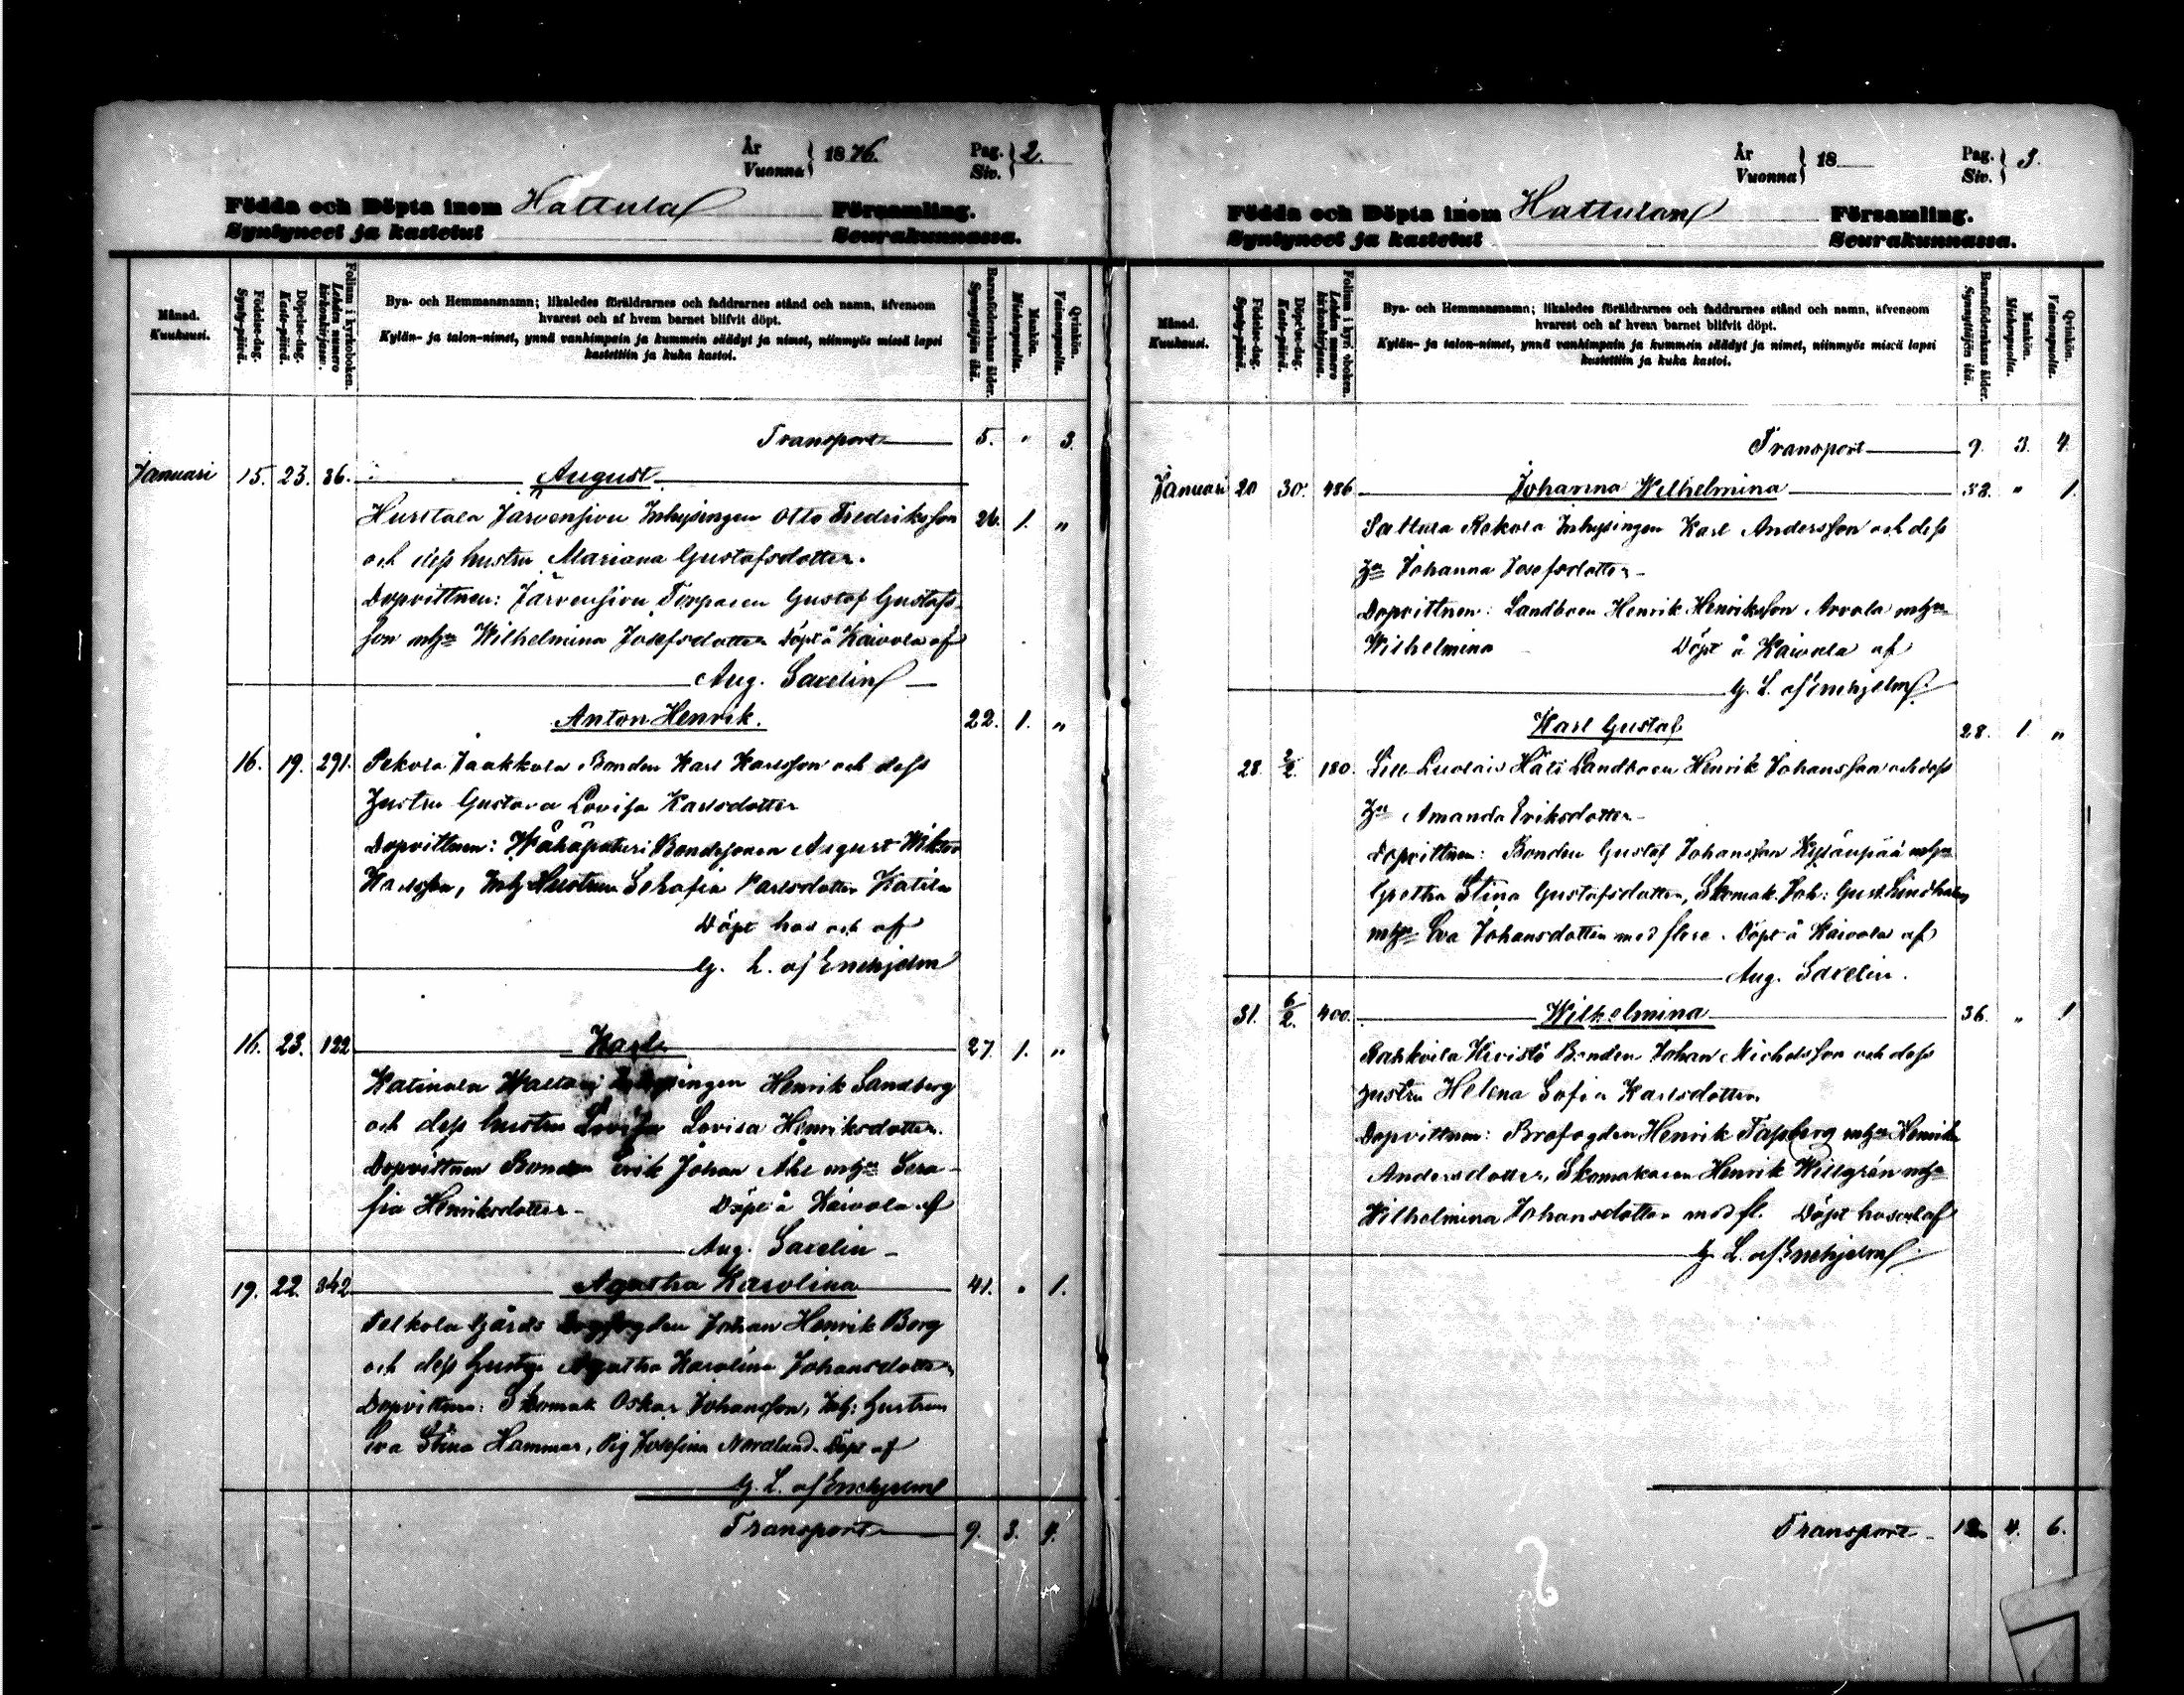 År
Vuonna } 1876.
Pag.
Siv. } 2.
Födda och Döpta inom Hattula Församling.
Syntyneet ja kastetut Seurakunnassa.
Månad.
Kuukausi.
Födelse-dag.
Synty-päivä.
Döpelse-dag.
Kaste-päivä.
Folium i kyrkoboken.
Lehden numero kirkonkirjassa.
Bya- och Hemmansnamn; likaledes föräldrarnes och faddrarnes stånd och namn, äfvensom
hvarest och af hvem barnet blifvit döpt.
Kylän- ja talon-nimet, ynnä vanhimpain ja kummein säädyt ja nimet, niinmyös missä lapsi
kastettiin ja kuka kastoi.
Barnaföderskans ålder.
Synnyttäjän ikä.
Mankön.
Miehenpuolia.
Qvinkön.
Vaimonpuolia.
Transport 5. " 3.
Januari 15. 23. 36. August
Hurttala Järvensivu Inhysingen Otto Fredriksson 26. 1. "
och dess hustru Mariana Gustafsdotter.
Dopvittnen: Järvensivu Torparen Gustaf Gustafs-
son m hu Wilhelmina Josefsdotter Döpt å Kaivola af
Aug. Saxelin
Anton Henrik. 22. 1. "
16. 19. 291. Pekola Jaakkola Bonden Karl Karlsson och dess
Hustru Gustava Lovisa Karlsdotter
Dopvittnen: Bondesonen August Wiktor
Karlsson, Inh Hustrun Serafia Karlsdotter Katila
Döpt hos och af
G. L. af Enehjelm
16. 23. 122 Karl 27. 1. "
Katinala Inhysingen Henrik Sandberg
och dess hustru Lovisa Lovisa Henriksdotter.
Dopvittnen Bonden Erik Johan m hu Sera-
fia Henriksdotter - Döpt å Kaivola af
Aug. Saxelin -
19. 22. 342 Agatha Karolina 41. " 1.
Pelkola Gårds Johan Henrik Berg
och dess Hustru Agatha Karolina Johansdotter
Dopvittnen: Skomak Oskar Johansson, Inh: Hustrun
Eva Stina Hammar, Pig Josefina Nordlund. Döpt af
G. L. af Enehjelm
Transport 9. 3. 4.
År
Vuonna } 18
Pag.
Siv. } 3.
Födda och Döpta inom Hattula Församling.
Syntyneet ja kastetut Seurakunnassa.
Månad.
Kuukausi.
Födelse-dag.
Synty-päivä.
Döpelse-dag.
Kaste-päivä.
Folium i kyrkoboken.
Lehden numero kirkonkirjassa.
Bya- och Hemmansnamn; likaledes föräldrarnes och faddrarnes stånd och namn, äfvensom
hvarest och af hvem barnet blifvit döpt.
Kylän- ja talon-nimet, ynnä vanhimpain ja kummein säädyt ja nimet, niinmyös missä lapsi
kastettiin ja kuka kastoi.
Barnaföderskans ålder.
Synnyttäjän ikä.
Mankön.
Miehenpuolia.
Qvinkön.
Vaimonpuolia.
Transport 9. 3. 4.
Januari 20 30. 486 Johanna Wilhelmina " 1.
Sattula Rekola Inhysingen Karl Andersson och dess
Hu Johanna Josefsdotter -
Dopvittnen: Landboen Henrik Henriksson Arvola m hu
Wilhelmina Döpt å Kaivola af
G. L. af Enehjelm.
Karl Gustaf 28. 1. "
28. 2/2. 180. Landboen Henrik Johansson och dess
Hu Amanda Eriksdotter -
Dopvittnen: Bonden Gustaf Johansson m hu
Gretha Stina Gustafsdotter, Skomak. Joh: Gust. Lindholm
m hu Eva Johansdotter med flere. Döpt å Kaivola af
Aug. Saxelin.
31. 6/2. 400. Wilhelmina 36. " 1
Rahkoila Kivistö Bonden Johan Michelsson och dess
Hustru Helena Sofia Karlsdotter
Dopvittnen: Brofogden Henrik m hu Henrika
Andersdotter, Skomakaren Henrik Willgrén m hu
Wilhelmina Johansdotter med fl. Döpt hos och af
G. L. af Enehjelm
Transport 12 4. 6.